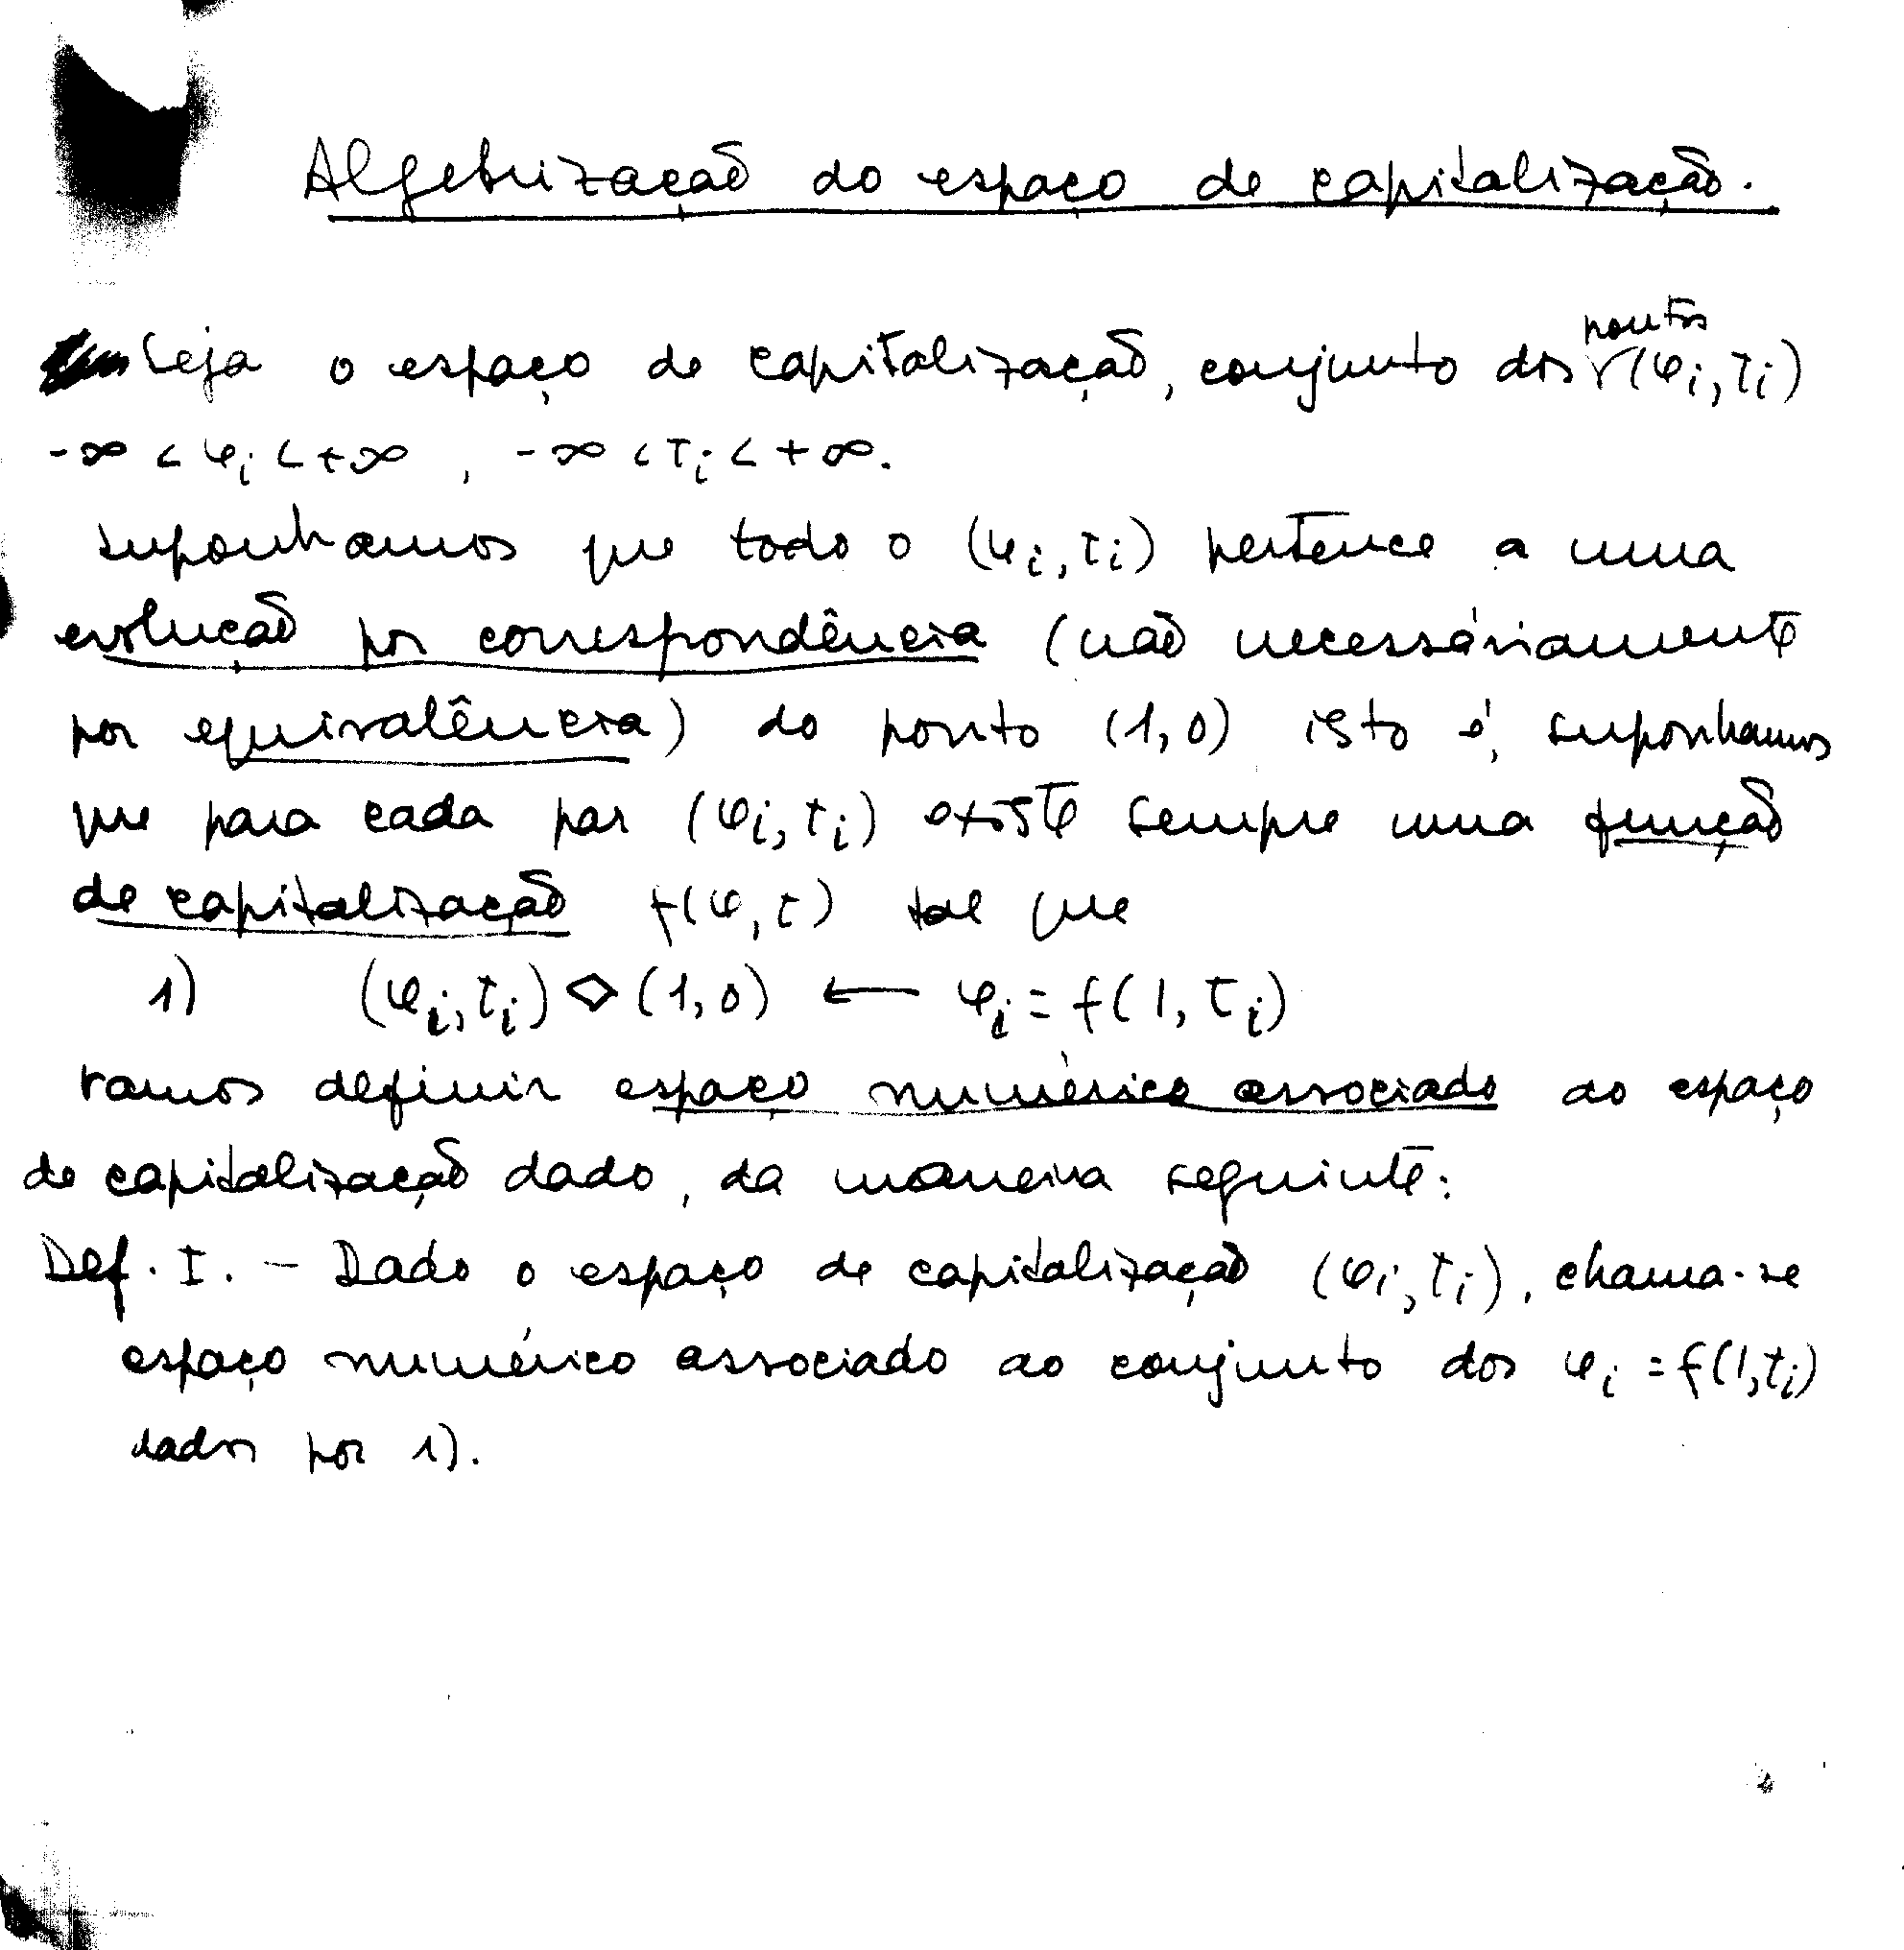 Algebrização do espaço de capitalização.
Seja o espaço de capitalização, conjunto dos pontos (φi, τi)
-∞ < φi < +∞, -∞ < τi < +∞.
suponhamos que todo o (φi, τi) pertence a uma
evolução por correspondência (não necessáriamente
por equivalência) do ponto (1,0) isto é, suponhamos
que para cada par (φi, τi) existe sempre uma função
de capitalização f(φ, τ) tal que
1) (φi, τi) ◇ (1,0) ← φi = f(1, τi)
vamos definir espaço numérico associado ao espaço
de capitalização dado, da maneira seguinte:
Def. I. – Dado o espaço de capitalização (φi, τi), chama-se
espaço numérico associado ao conjunto dos φi = f(1, τi)
dados por 1).